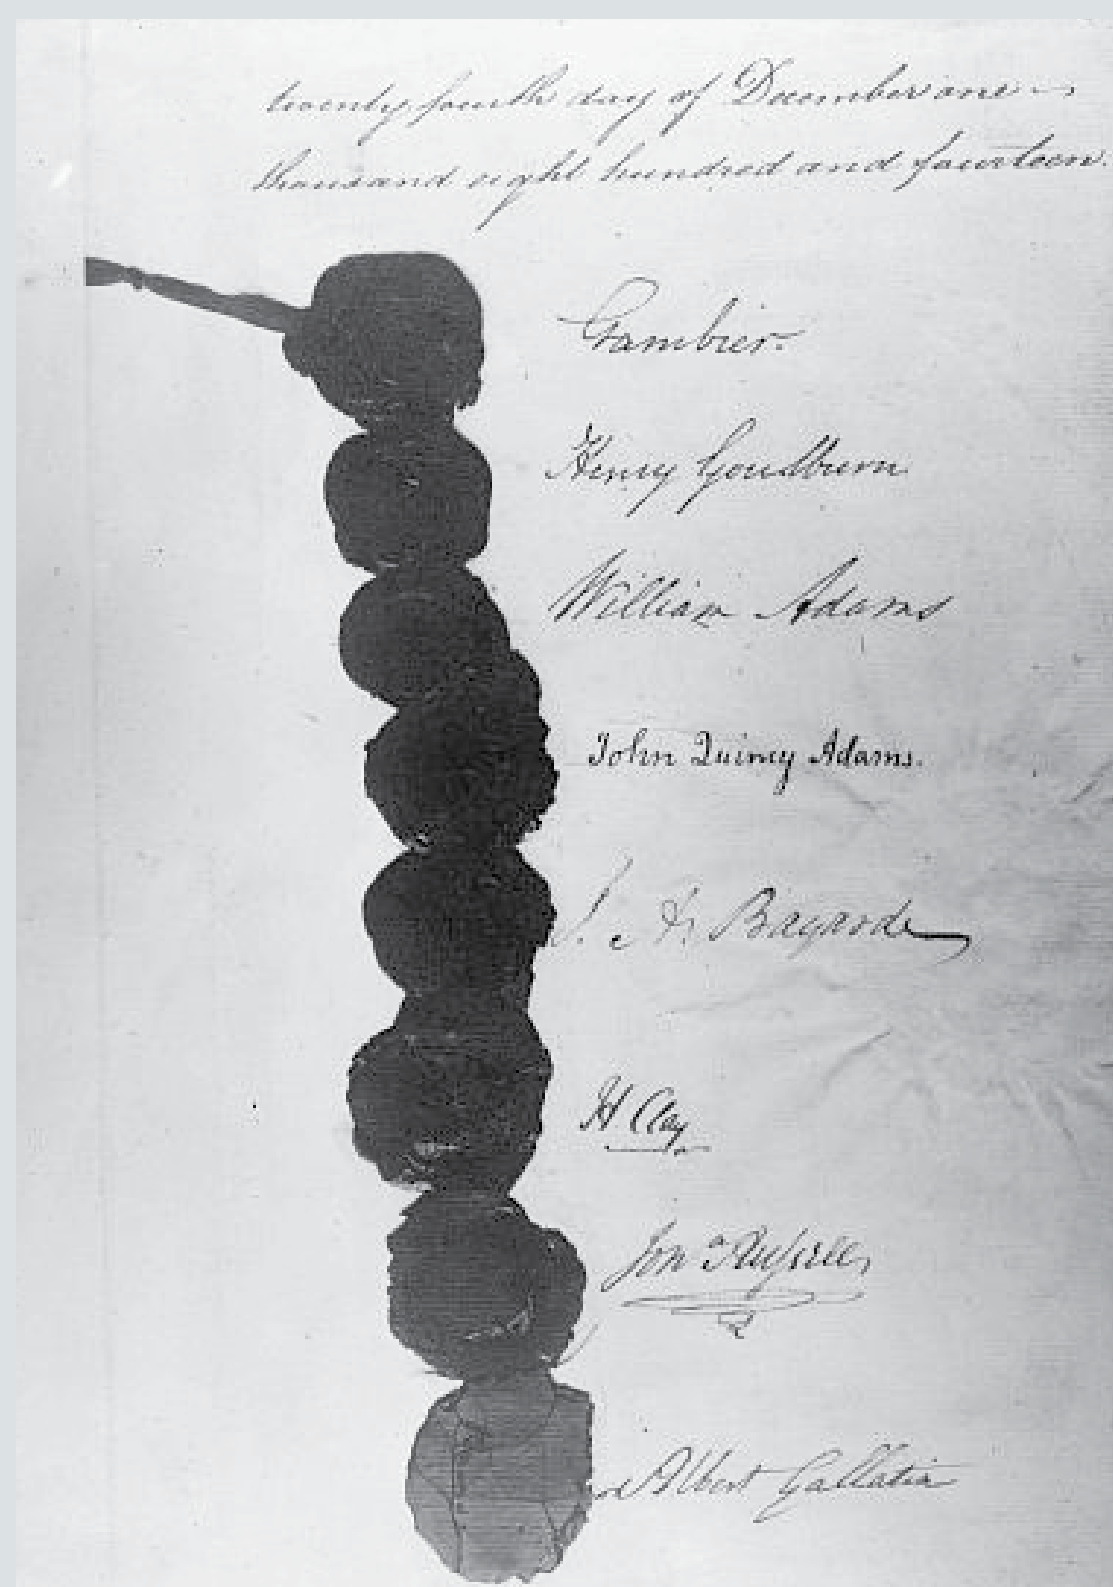 twenty fourth day of December one
thousand eight hundred and fourteen.
Gambier.
Henry Goulburn
William Adams
John Quincy Adams.
J. A. Bayard
H Clay
Jon.a Russell
Albert Gallatin